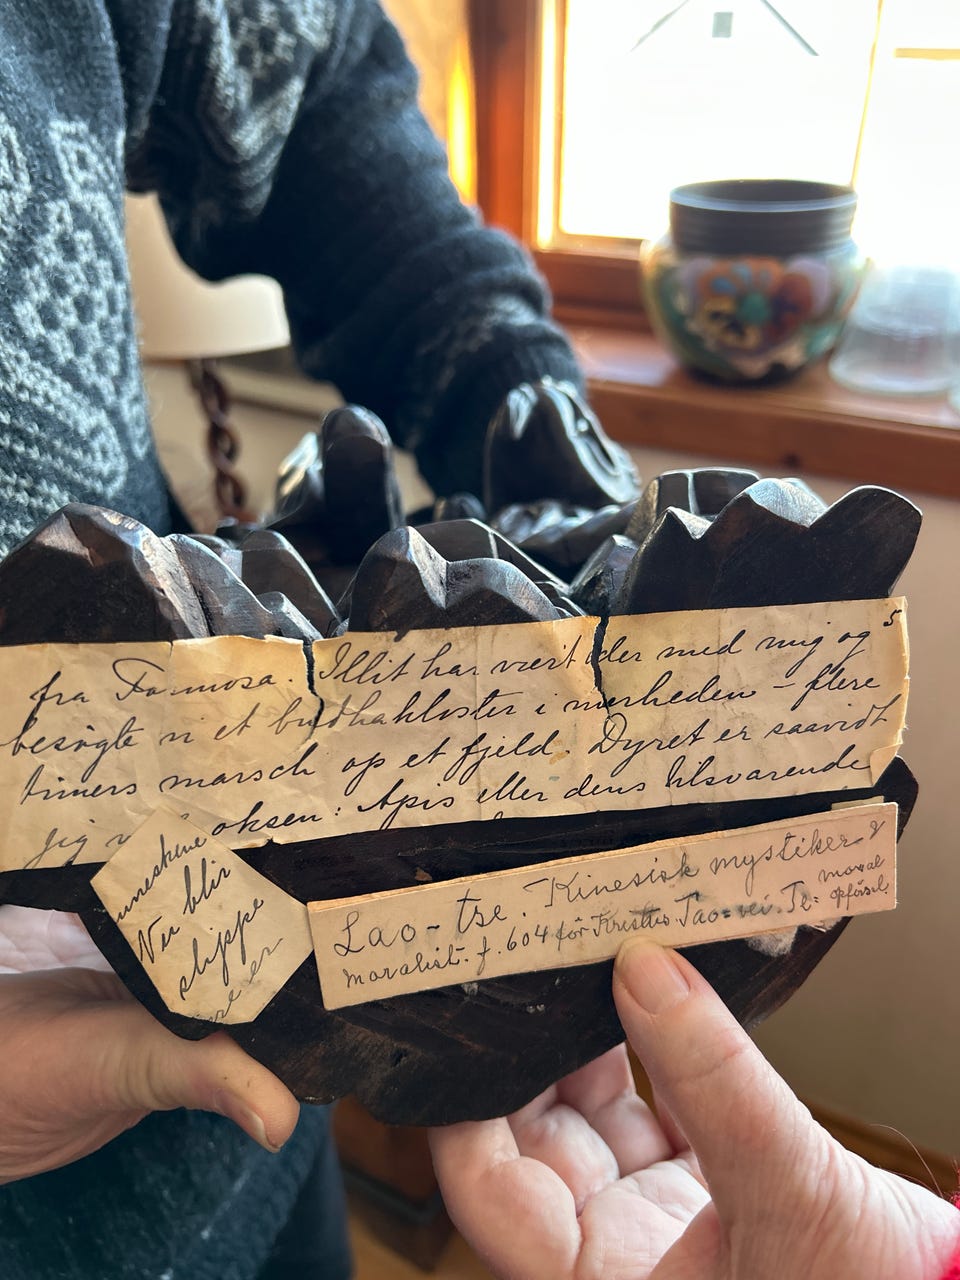 fra Formosa. Illit har vært der med mig og 5
besøgte vi et budhakloster i nærheden – flere
timers marsch op et fjeld. Dyret er saavidt
jeg v oksen: Apis eller dens tilsvarende
menneskene
Nu blir
slippe
er
Lao-tse. Kinesisk mystiker &
moralist. f. 604 før Kristus Tao=vei. Te= moral
opførsel.